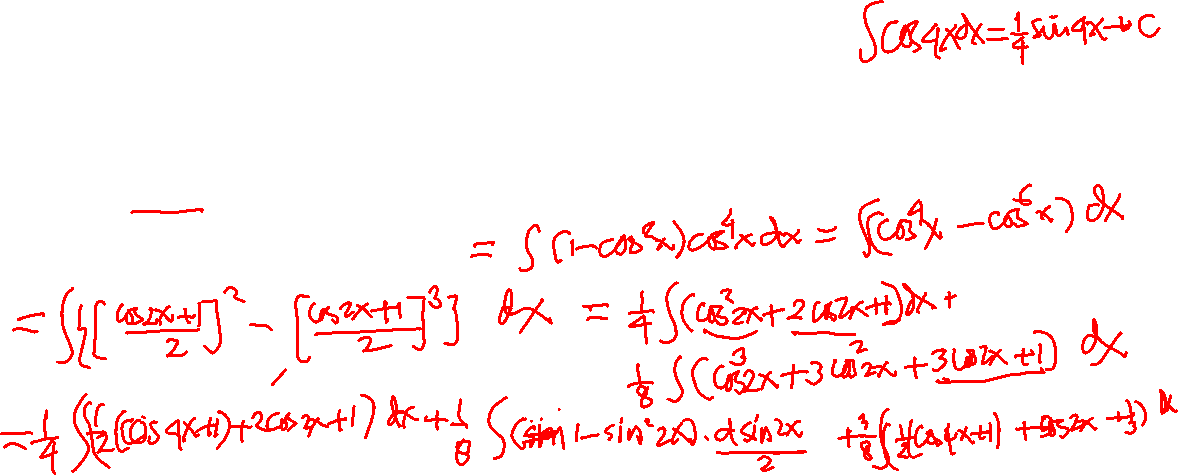 ∫cos4xdx=1/4 sin4x+C
= ∫(1-cos²x)cos⁴xdx = ∫(cos⁴x - cos⁶x) dx
= ∫{[(cos2x+1)/2]² - [(cos2x+1)/2]³} dx = 1/4 ∫(cos²2x+2cos2x+1)dx +
1/8 ∫(cos³2x+3cos²2x+3cos2x+1) dx
= 1/4 ∫(1/2(cos4x+1)+2cos2x+1) dx + 1/8 ∫(1-sin²2x)·dsin2x/2 + 3/8 ∫(1/2(cos4x+1) + cos2x + 1/3) dx